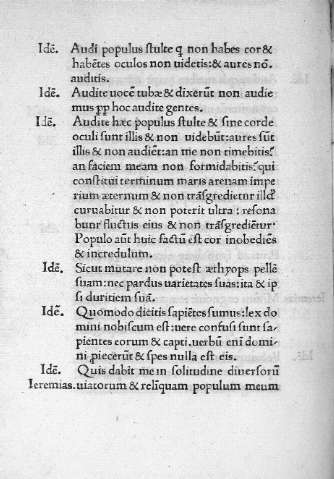 Idē. Audi populus stulte q non habes cor &
habētes oculos non uidetis: & aures nō.
auditis.
Idē. Audite uocē tubæ & dixerūt non audie
mus pp hoc audite gentes.
Idē. Audite hæc populus stulte & sine corde
oculi sunt illis & non uidebūt: aures sūt
illis & non audiēt: an me non timebitis?
an faciem meam non formidabitis? qui
constitui terminum maris arenam impe
rium æternum & non trāsgredietur illd:
curuabitur & non poterit ultra: resona
bunt fluctus eius & non trāsgrediētur.
Populo aūt huic factū est cor inobediēs
& incredulum.
Idē. Sicut mutare non potest æthyops pellē
suam: nec pardus uarietates suas: ita & ip
si duritiem suā.
Idē. Quomodo dicitis sapiētes sumus: lex do
mini nobiscum est: uere confusi sunt sa-
pientes eorum & capti. uerbū enī domi-
ni piecerūt & spes nulla est eis.
Idē. Quis dabit me in solitudine diuersorū
Ieremias. uiatorum & relīquam populum meum